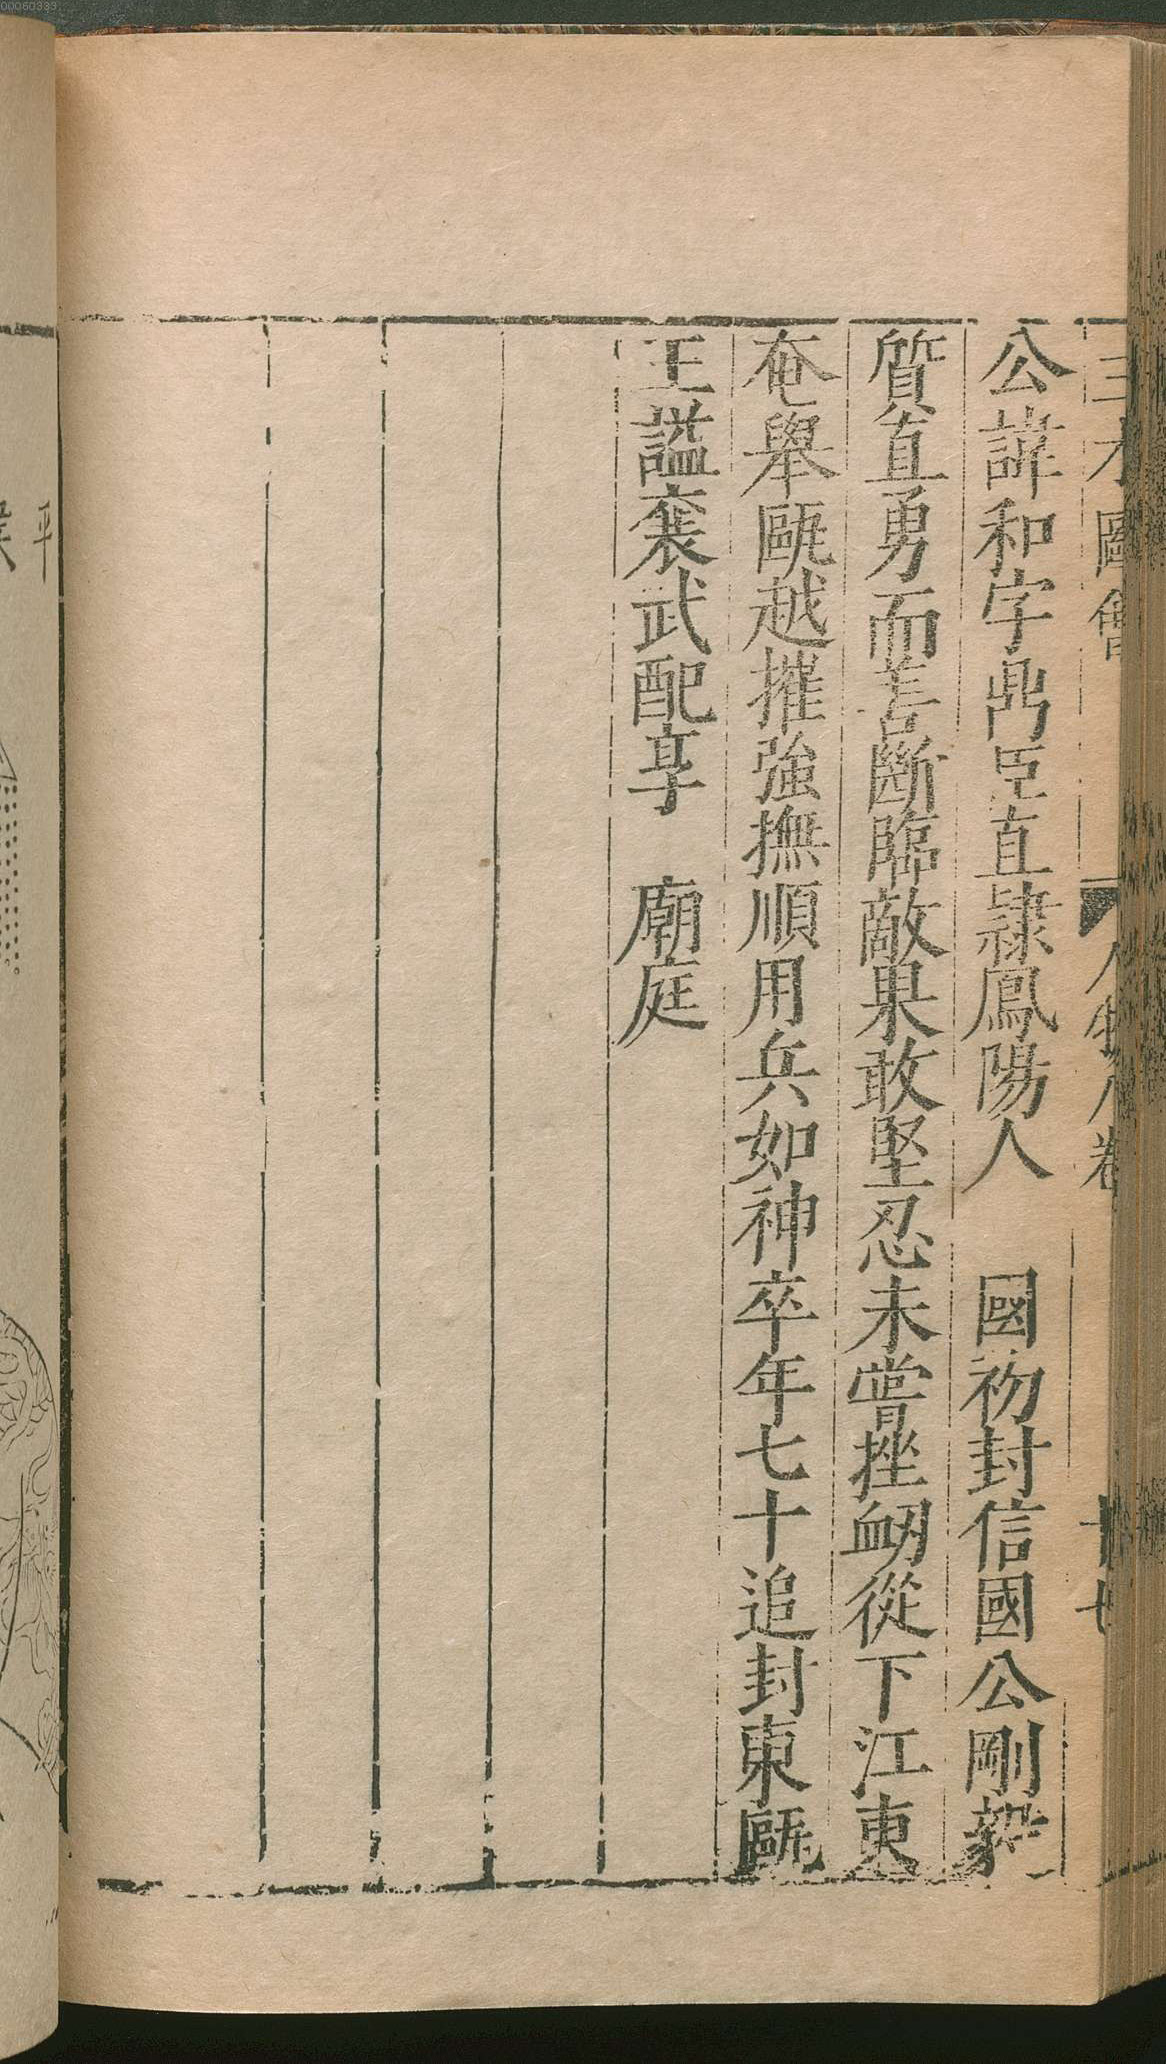 公諱和字鼎臣直隸鳳陽人　國初封信國公剛毅
質直勇而善斷臨敵果敢堅忍未嘗挫衂從下江東
奄舉甌越摧強撫順用兵如神卒年七十追封東甌
王謚襄武配享　廟庭
00060333